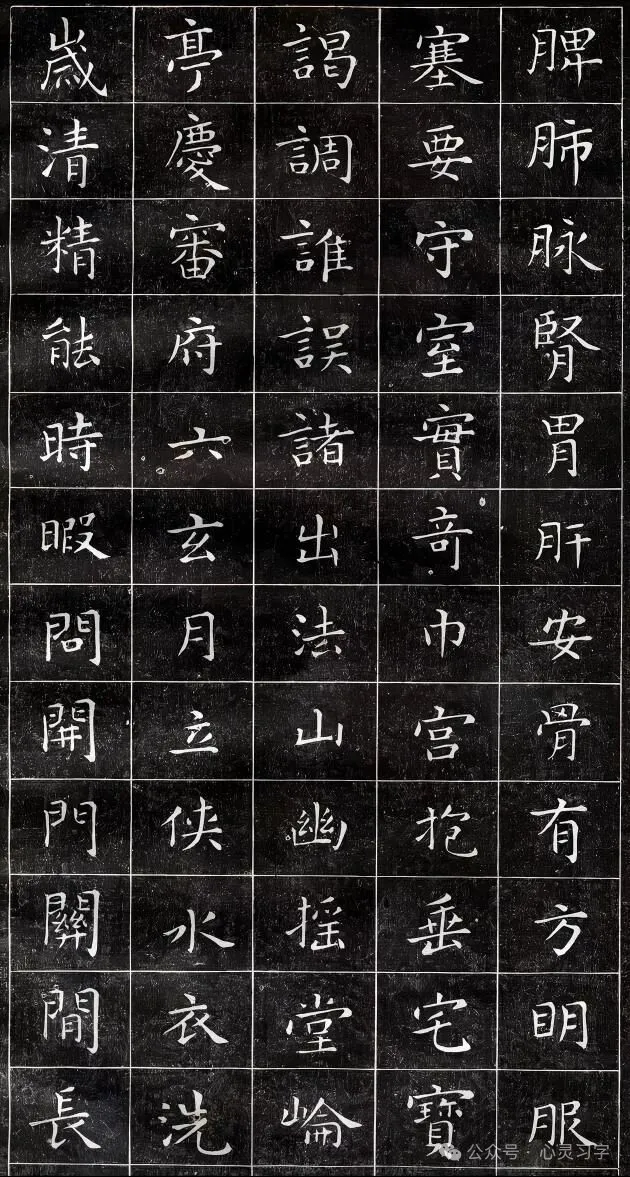 脾肺脉腎胃肝安骨有方眀服
塞要守室實奇巾宫抱垂宅寶
謁調誰誤諸出法山幽摇堂崘
亭慶審府六玄月立侠水衣洗
歲清精能時暇問開門關閒長
公众号·心灵习字